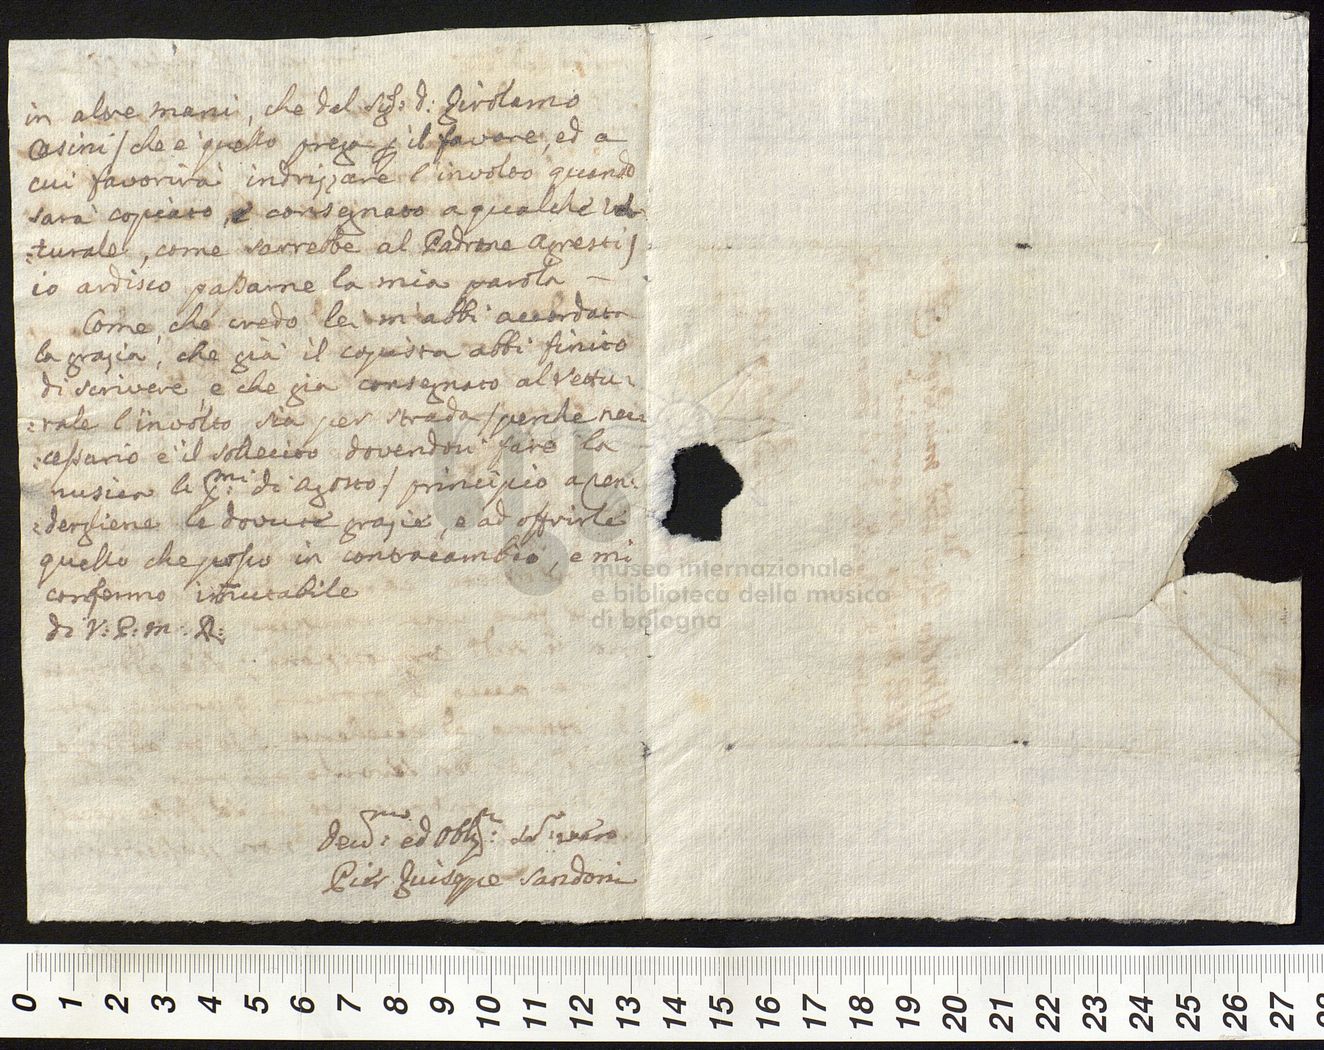 in altre mani, che del Sig: d: Girolamo
Casini / che è quello prega p il favore, ed a
cui favorirà indrizzare l'involto quando
sarà copiato, e consegnato a qualche vet
:turale, come sarrebbe al Padrone Agresti /
io ardisco passarne la mia parola —
Come che credo lei m'abbi accordata
la grazia, che già il copista abbi finito
di scrivere, e che già consegnato al vettu:
:rale l'involto sia per strada / perche nec
:cessario è il sollecito dovendosi fare la
musica li pmi: di Agosto / principio a ren:
:dergliene le dovute grazie, e ad offrirle
quello che posso in contracambio, e mi
confermo immutabile
di V: P: M: R:
Devmo: ed Obblig:
Pier Giuseppe Sandoni
museo internazionale
e biblioteca della musica
di bologna
0 1 2 3 4 5 6 7 8 9 10 11 12 13 14 15 16 17 18 19 20 21 22 23 24 25 26 27 28